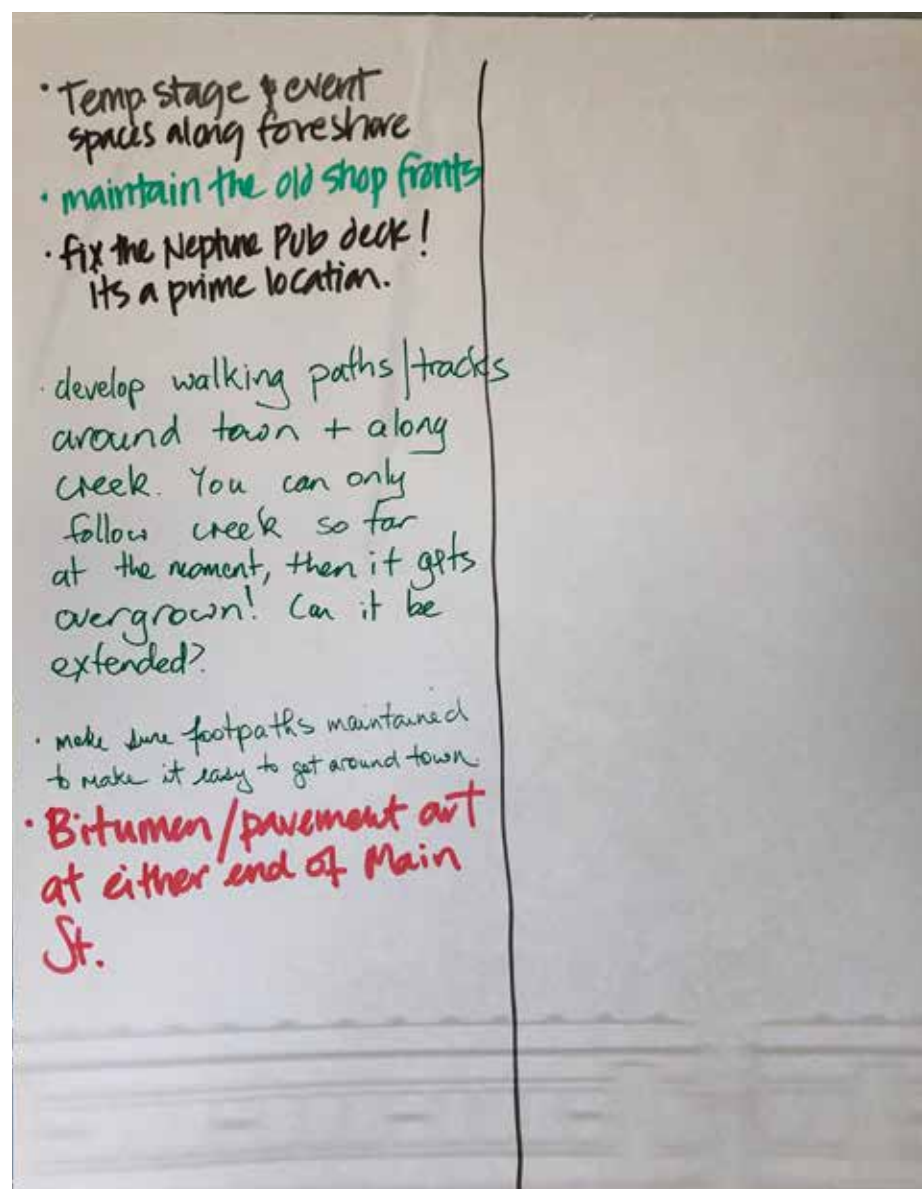 · Temp. stage & event
spaces along foreshore
· maintain the old shop fronts
· fix the Neptune Pub deck!
Its a prime location.
· develop walking paths/tracks
around town + along
creek. You can only
follow creek so far
at the moment, then it gets
overgrown! Can it be
extended?
· make sure footpaths maintained
to make it easy to get around town.
· Bitumen/pavement art
at either end of Main
St.